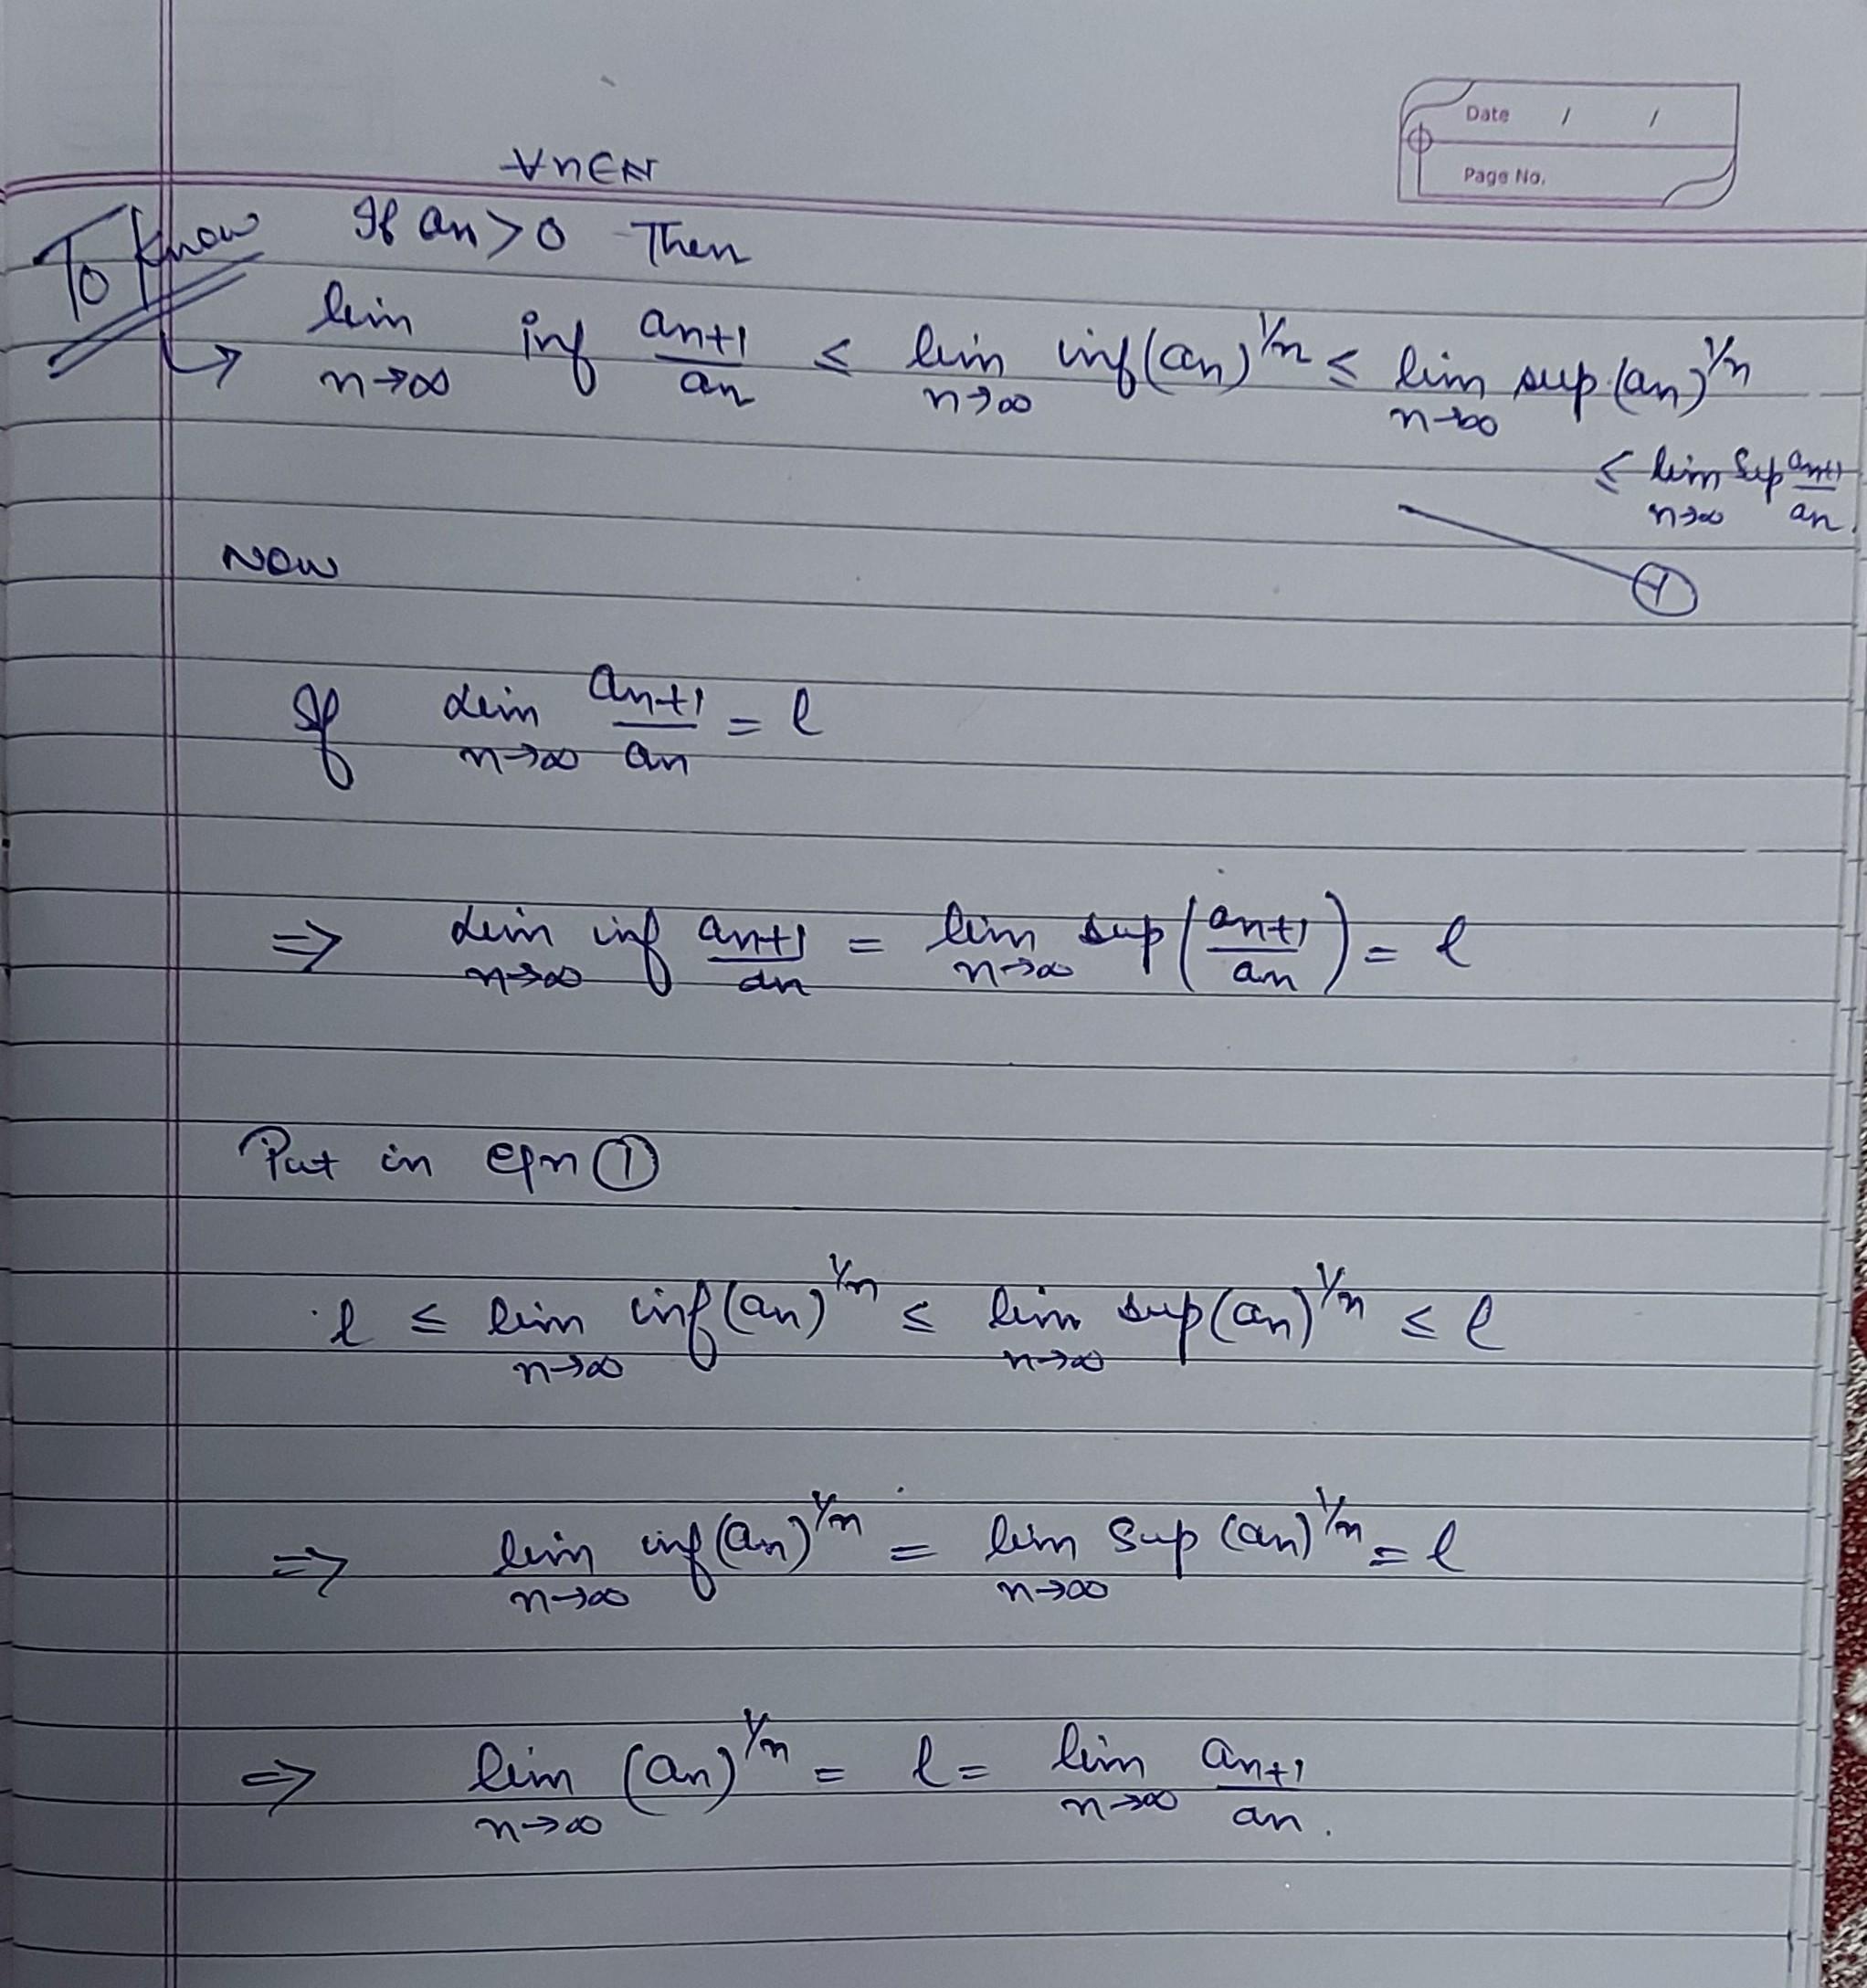 Date / /
Page No.
∀n∈N
To know If an>0 Then
lim n→∞ inf an+1/an ≤ lim n→∞ inf(an)^1/n ≤ lim n→∞ sup(an)^1/n
≤ lim n→∞ Sup an+1/an.
①
Now
If Lim n→∞ an+1/an = l
⇒ Lim n→∞ inf an+1/an = lim n→∞ sup(an+1/an) = l
Put in eqn ①
l ≤ lim n→∞ inf(an)^1/n ≤ lim n→∞ sup(an)^1/n ≤ l
⇒ lim n→∞ inf(an)^1/n = lim n→∞ Sup (an)^1/n = l
⇒ lim n→∞ (an)^1/n = l = lim n→∞ an+1/an.